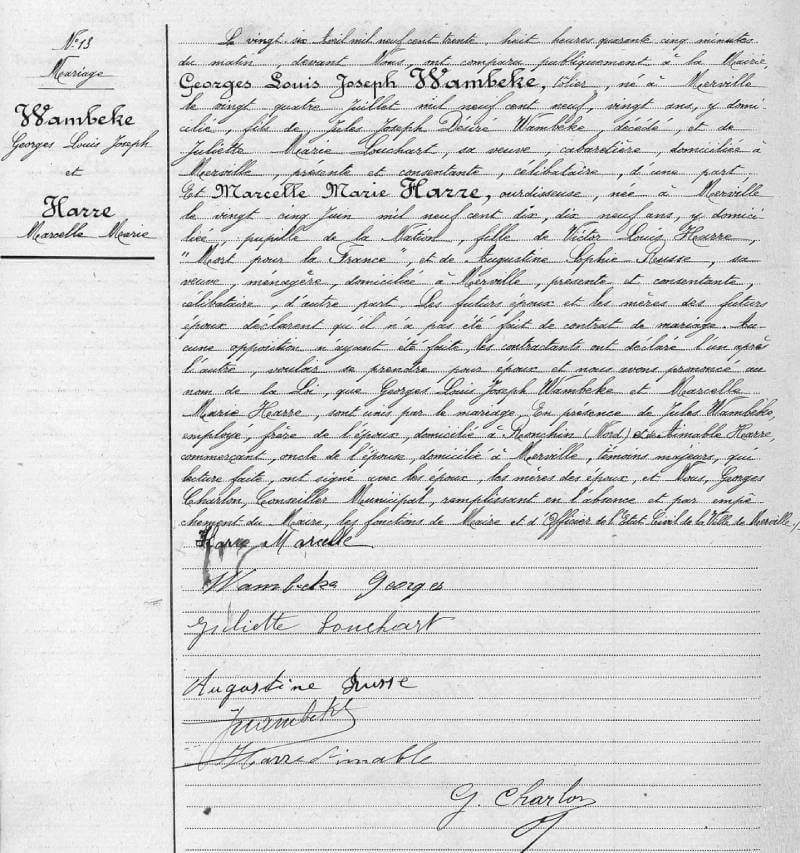 N° 13
Mariage
Wambeke
Georges Louis Joseph
et
Harre
Marcelle Marie
Le vingt six Avril mil neuf cent trente, huit heures quarante cinq minutes
du matin, devant Nous, ont comparu publiquement à la Mairie,
Georges Louis Joseph Wambeke, tôlier, né à Merville
le vingt quatre Juillet mil neuf cent neuf, vingt ans, y domi-
cilié, fils de Jules Joseph Désiré Wambeke, décédé, et de
Juliette Marie Louchart, sa veuve, cabaretière, domiciliée à
Merville, présente et consentante, célibataire, d'une part,
Et Marcelle Marie Harre, ourdisseuse, née à Merville
le vingt cinq Juin mil neuf cent dix, dix neuf ans, y domici-
liée, pupille de la Nation, fille de Victor Louis Harre,
"Mort pour la France", et de Augustine Sophie Russe, sa
veuve, ménagère, domiciliée à Merville, présente et consentante,
célibataire, d'autre part. Les futurs époux et les mères des futurs
époux déclarent qu'il n'a pas été fait de contrat de mariage. Au-
cune opposition n'ayant été faite, les contractants ont déclaré l'un après
l'autre, vouloir se prendre pour époux et nous avons prononcé au
nom de la Loi, que Georges Louis Joseph Wambeke et Marcelle
Marie Harre, sont unis par le mariage. En présence de Jules Wambeke,
employé, frère de l'époux, domicilié à Ronchin (Nord) et de Aimable Harre,
commerçant, oncle de l'épouse, domicilié à Merville, témoins majeurs, qui
lecture faite, ont signé avec les époux, les mères des époux, et Nous, Georges
Charlon, Conseiller Municipal, remplissant en l'absence et par empê-
chement du Maire, les fonctions de Maire et d'Officier de l'Etat Civil de la Ville de Merville./.
Harre Marcelle
Wambeke Georges
Juliette Louchart
Augustine Russe
JWambeke
Harre Aimable
G. Charlon